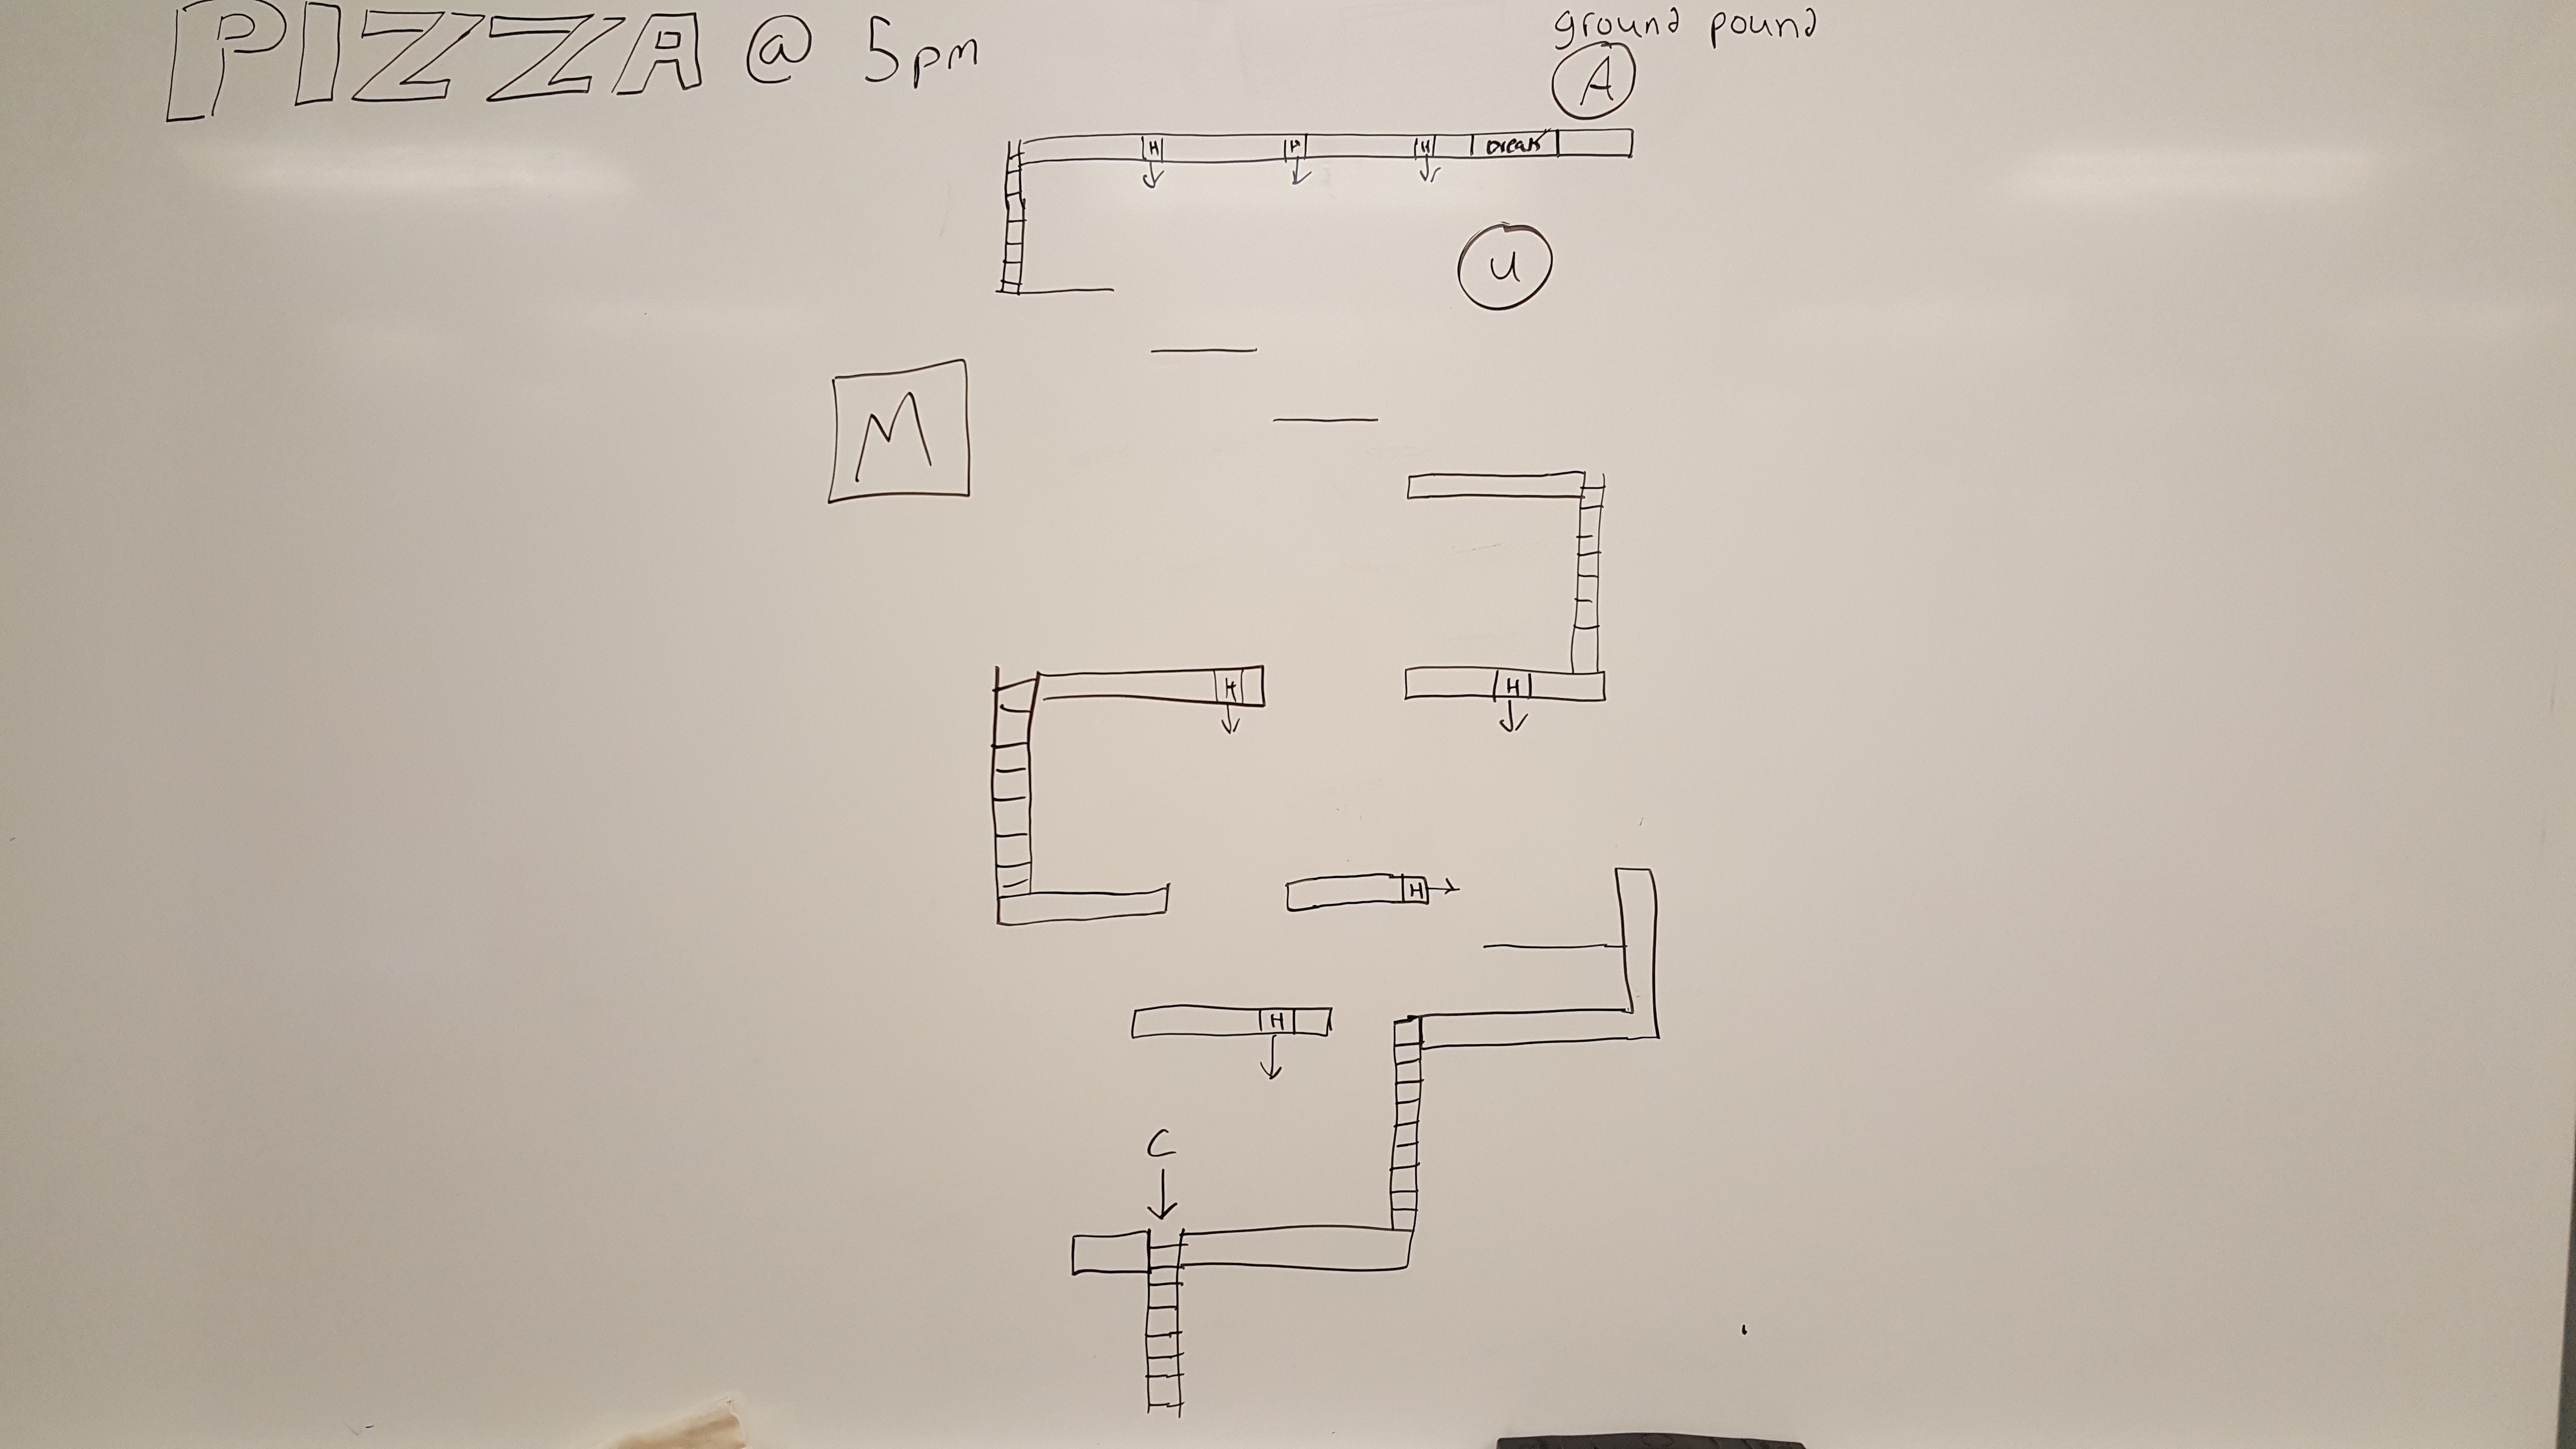 PIZZA @ 5pm
ground pound
A
H H H break
U
M
H H
H
H
C